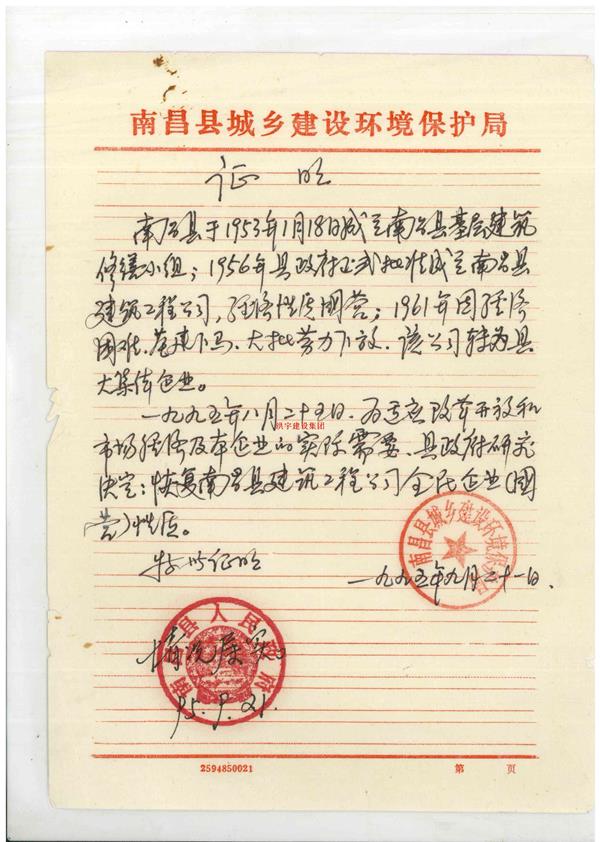 南昌县城乡建设环境保护局
证明
南昌县于1953年1月18日成立南昌县基层建筑
修缮小组；1956年县政府正式批准成立南昌县
建筑工程公司，经济性质国营；1961年因经济
困难、基建下马、大批劳力下放、该公司转为县
大集体企业。
一九九五年八月二十五日、为适应改革开放和
洪宇建设集团
市场经济及本企业的实际需要、县政府研究
决定：恢复南昌县建筑工程公司全民企业（国
营）性质。
特此证明
南昌县城乡建设环境保护局
一九九五年九月二十一日、
南昌县人民政府
情况属实。
95.9.21.
2594850021
第 页